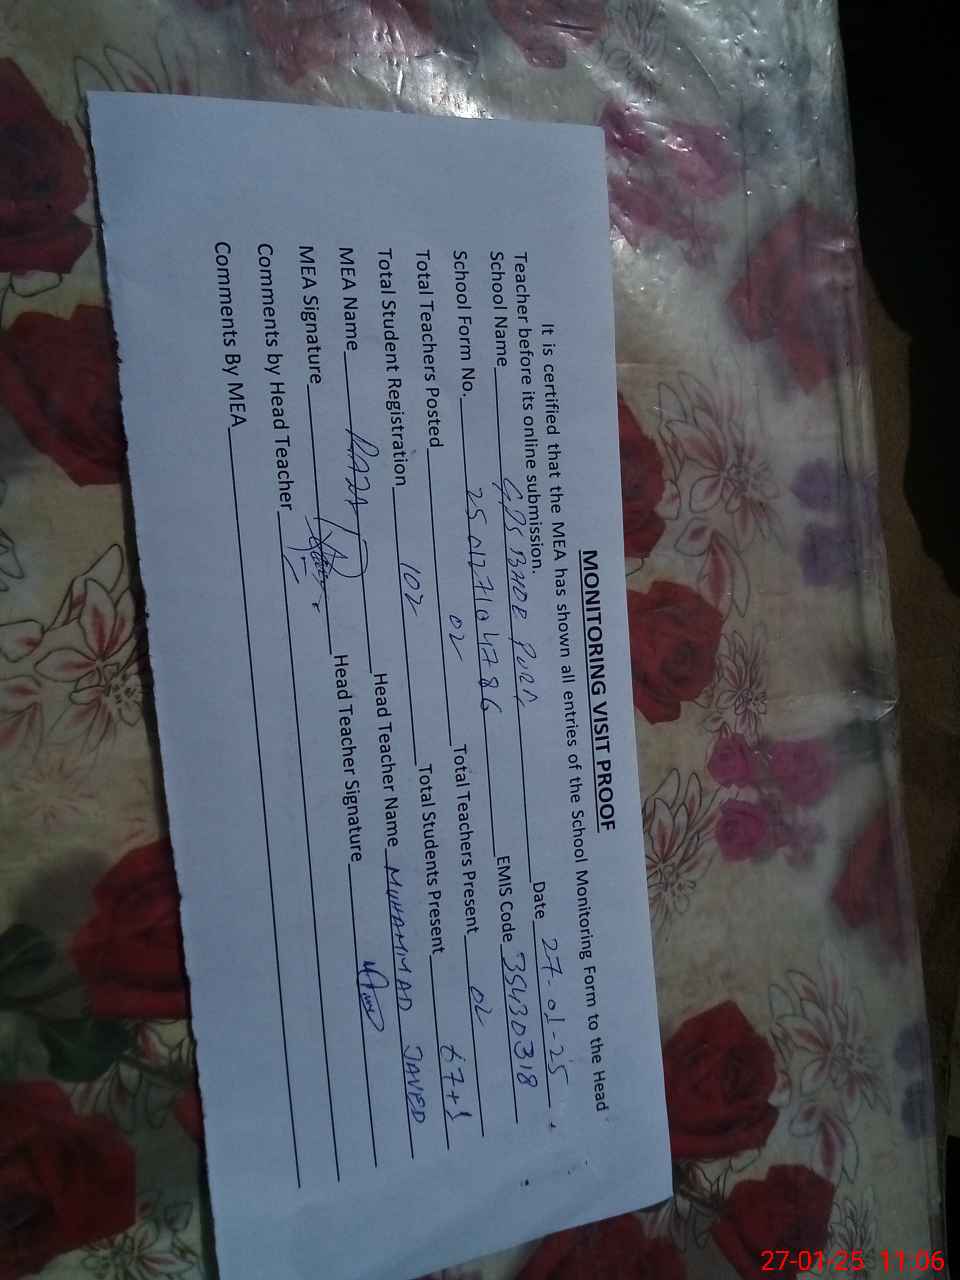 MONITORING VISIT PROOF
It is certified that the MEA has shown all entries of the School Monitoring Form to the Head
Teacher before its online submission.
School Name GPS BHDE PURA Date 27-01-25
School Form No. 250127104786 EMIS Code 35430318
Total Teachers Posted 02 Total Teachers Present 02
Total Student Registration 102 Total Students Present 67+1
MEA Name RAZA Head Teacher Name MUHAMMAD JAVED
MEA Signature Head Teacher Signature
Comments by Head Teacher
Comments By MEA
27-01-25 11:06